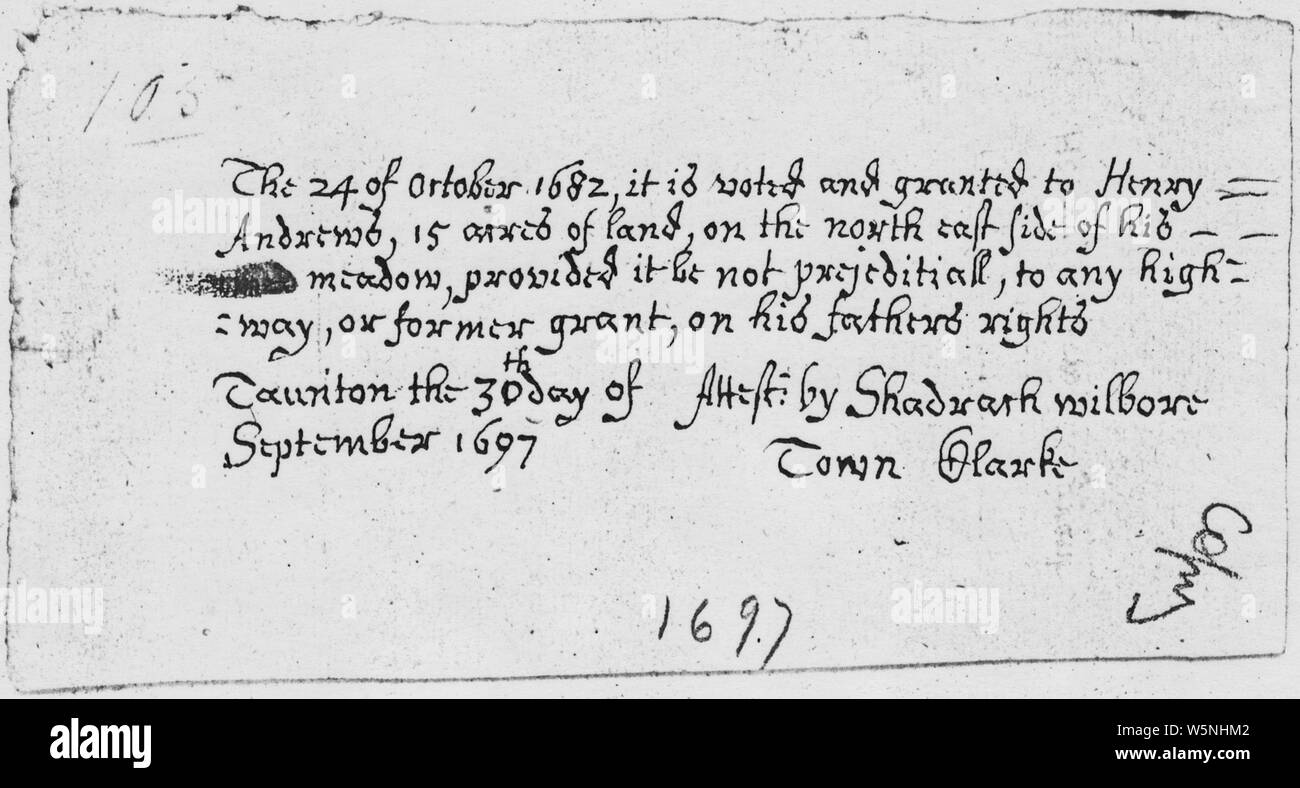 103
The 24 of October 1682, it is voted and granted to Henry =
Andrews, 15 acres of land, on the north east side of his - -
meadow, provided it be not prejeditiall, to any high=
=way, or former grant, on his fathers rights
Taunton the 30th day of Attest: by Shadrach wilbore
September 1697 Town Clarke
Copy
1697
alamy
W5NHM2
www.alamy.com